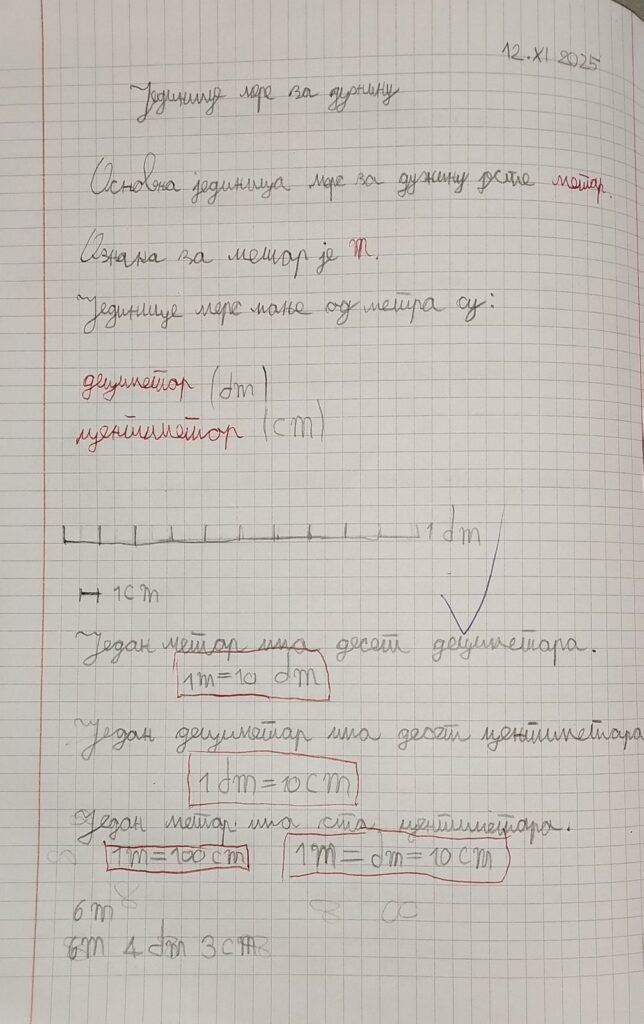 12.XI 2025
Јединице мере за дужину
Основна јединица мере за дужину јесте метар.
Ознака за метар је m.
Јединице мере мање од метра су:
дециметар (dm)
центиметар (cm)
1 dm
1cm
Један метар има десет дециметара.
1m=10 dm
Један дециметар има десет центиметара
1 dm=10cm
Један метар има сто центиметара.
1m=100cm 1m=dm=10cm
6m
6m 4dm 3cm